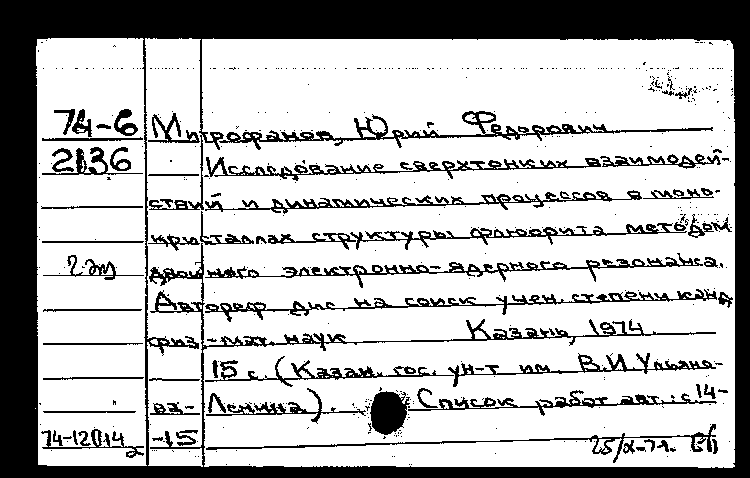 74-6 Митрофанов, Юрий Федорович
2136 Исследование сверхтонких взаимодей-
ствий и динамических процессов в моно-
кристаллах структуры флюорита методом
2 эк двойного электронно-ядерного резонанса.
Автореф. дис. на соиск. учен. степени канд.
физ.-мат. наук. Казань, 1974.
15 с. (Казан. гос. ун-т им. В.И. Ульяно-
ва-Ленина). Список работ авт.: с. 14-
-15
25/X-74.